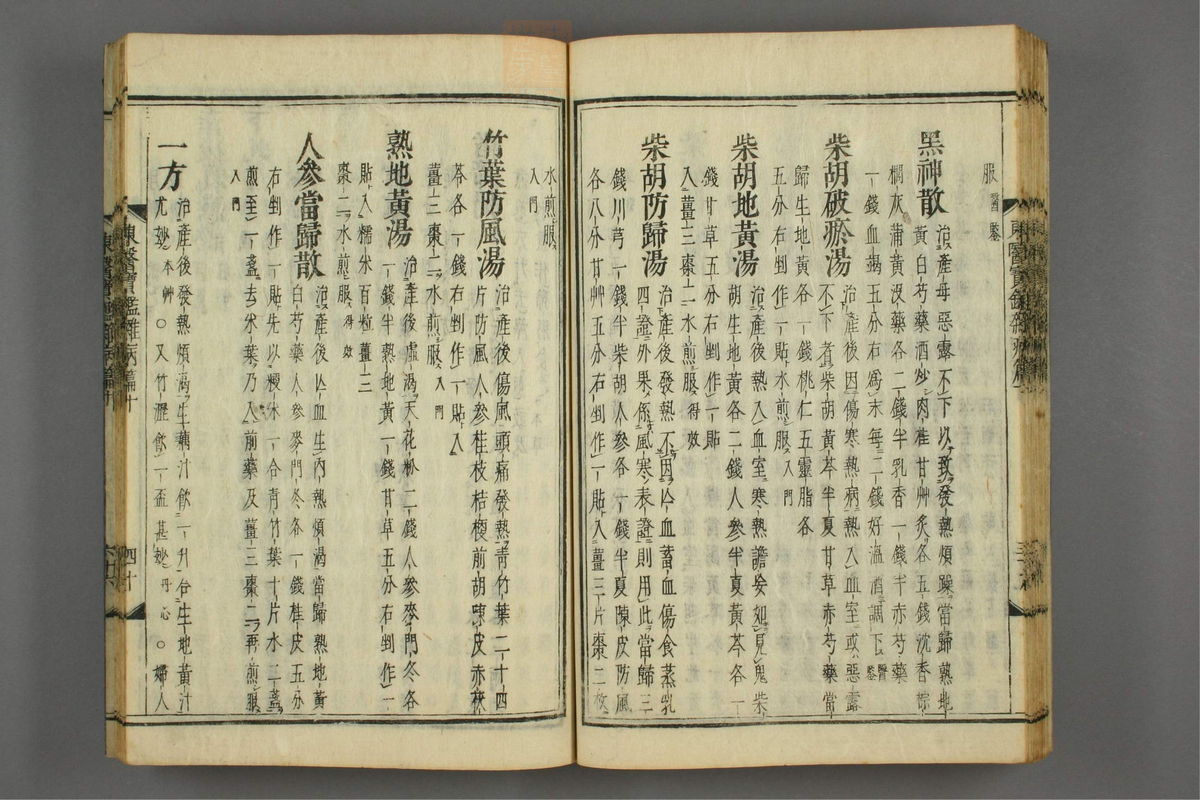 服 醫鑒
黑神散 治産母惡露不下以致發熱煩躁當歸熟地
黃白芍藥酒炒肉桂甘艸炙各五錢沈香棕
櫚灰蒲黃沒藥各二錢半乳香一錢半赤芍藥
一錢血竭五分右爲末每二錢好溫酒調下 醫鑒
柴胡破瘀湯 治産後因傷寒熱病熱入血室或惡露
不下者柴胡黃芩半夏甘草赤芍藥當
歸生地黃各一錢桃仁五靈脂各
五分右剉作一貼水煎服 入門
柴胡地黃湯 治産後熱入血室寒熱譫妄如見鬼柴
胡生地黃各二錢人參半夏黃芩各一
錢甘草五分右剉作一貼
入薑三棗二水煎服 得效
柴胡防歸湯 治産後發熱不因去血蓄血傷食蒸乳
四證外果係風寒表證則用此當歸三
錢川芎一錢半柴胡人參各一錢半夏陳皮防風
各八分甘艸五分右剉作一貼入薑三片棗二枚
水煎服
入門
竹葉防風湯 治産後傷風頭痛發熱靑竹葉二十四
片防風人參桂枝桔梗前胡陳皮赤茯
苓各一錢右剉作一貼入
薑三棗二水煎服 入門
熟地黃湯 治産後虛渴天花粉二錢人參麥門冬各
一錢半熟地黃一錢甘草五分右剉作一
貼入糯米百粒薑三
棗二水煎服 得效
人參當歸散 治産後去血生內熱煩渴當歸熟地黃
白芍藥人參麥門冬各一錢桂皮五分
右剉作一貼先以粳米一合靑竹葉十片水二盞
煎至一盞去米葉乃入前藥及薑三棗二再煎服
入門
一方 治産後發熱煩渴生藕汁飮一升合生地黃汁
尤妙 本艸 ○又竹瀝飮一盃甚妙 丹心 ○婦人
東醫寶鑑雜病篇十
四十